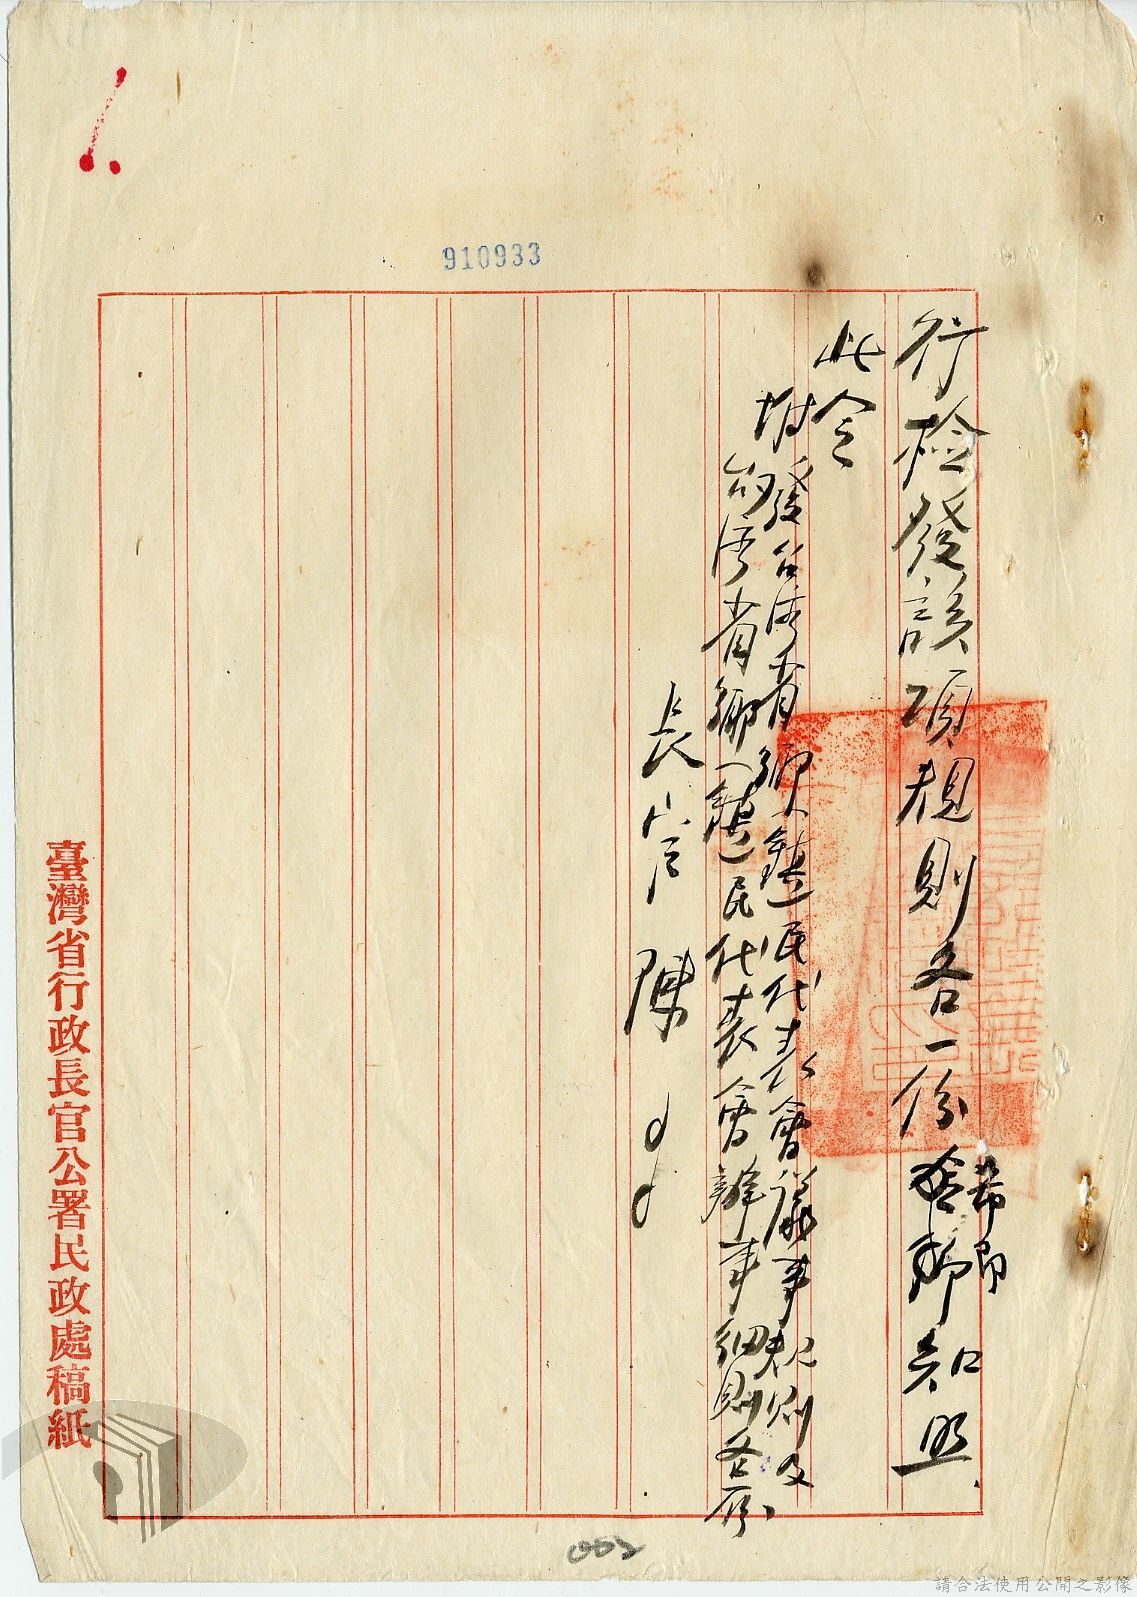 910933
行檢發該項規則各一份希即知照
此令
附發台灣省鄉(鎮)民代表會議事規則及
台灣省鄉(鎮)民代表會辦事細則各一份
長官陳
臺灣省行政長官公署民政處稿紙
002
請合法使用公開之影像